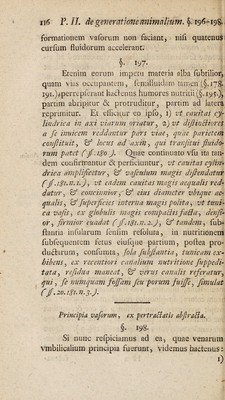 116 P. II. de generatione animalium. §. 196-198.
formationem vasorum non faciant, nisi quatenus
cursum fluidorum accelerant.
§. 197.
Etenim eorum impetu materia alba subtilior,
quam vias occupantem, semifluidam nimen (§.178.
191.) aperreperant lacteus humores nutritii (§.195.),
partim abripitur & protruditur, partim ad latera
reprimitur. Et efficitur eo ipso, 1) vt cavitas cy-
lindrica in axi viarum oriatur, 2) vt distinctiores
a se invicem reddantur pars viae, quae parietem
constituit, & locus ad axin, qui transitui fluido-
rum patet (§. 180.). Quae continuata vis in tan-
dem constringuntur & perficiuntur, vt cavitas cylin-
drica amplificetur, & vasenium magis distendatur
(§. 181. n. 1.), vt eadem cavitas magis aequalis red-
datur, & concinnior; & eius diameter ubique ae-
qualis, & superficies interna magis polita, vt tuni-
ca vasis, ex globulis magis compactis facta, densi-
or, firmior evadat (§. 181. n. 2.), & tandem, sub-
stantia insularum sensim resoluta, in nutritionem
subsequentem fetus eiusque partium, postea pro-
ductorum, consumta, sola substantia, tunicam ex-
hibens, ex recentiori canalium nutritione suppedi-
tata, residua maneat, & verus canalis referatur,
qui, se nunquam fossam seu porum fuisse, simulat
(§. 20. 181. n. 3.).
Principia vasorum, ex pertractatis abstracta.
§. 198.
Si nunc respiciamus ad ea, quae venarum
vmbilicalium principia fuerunt, videmus hactenus:
1)